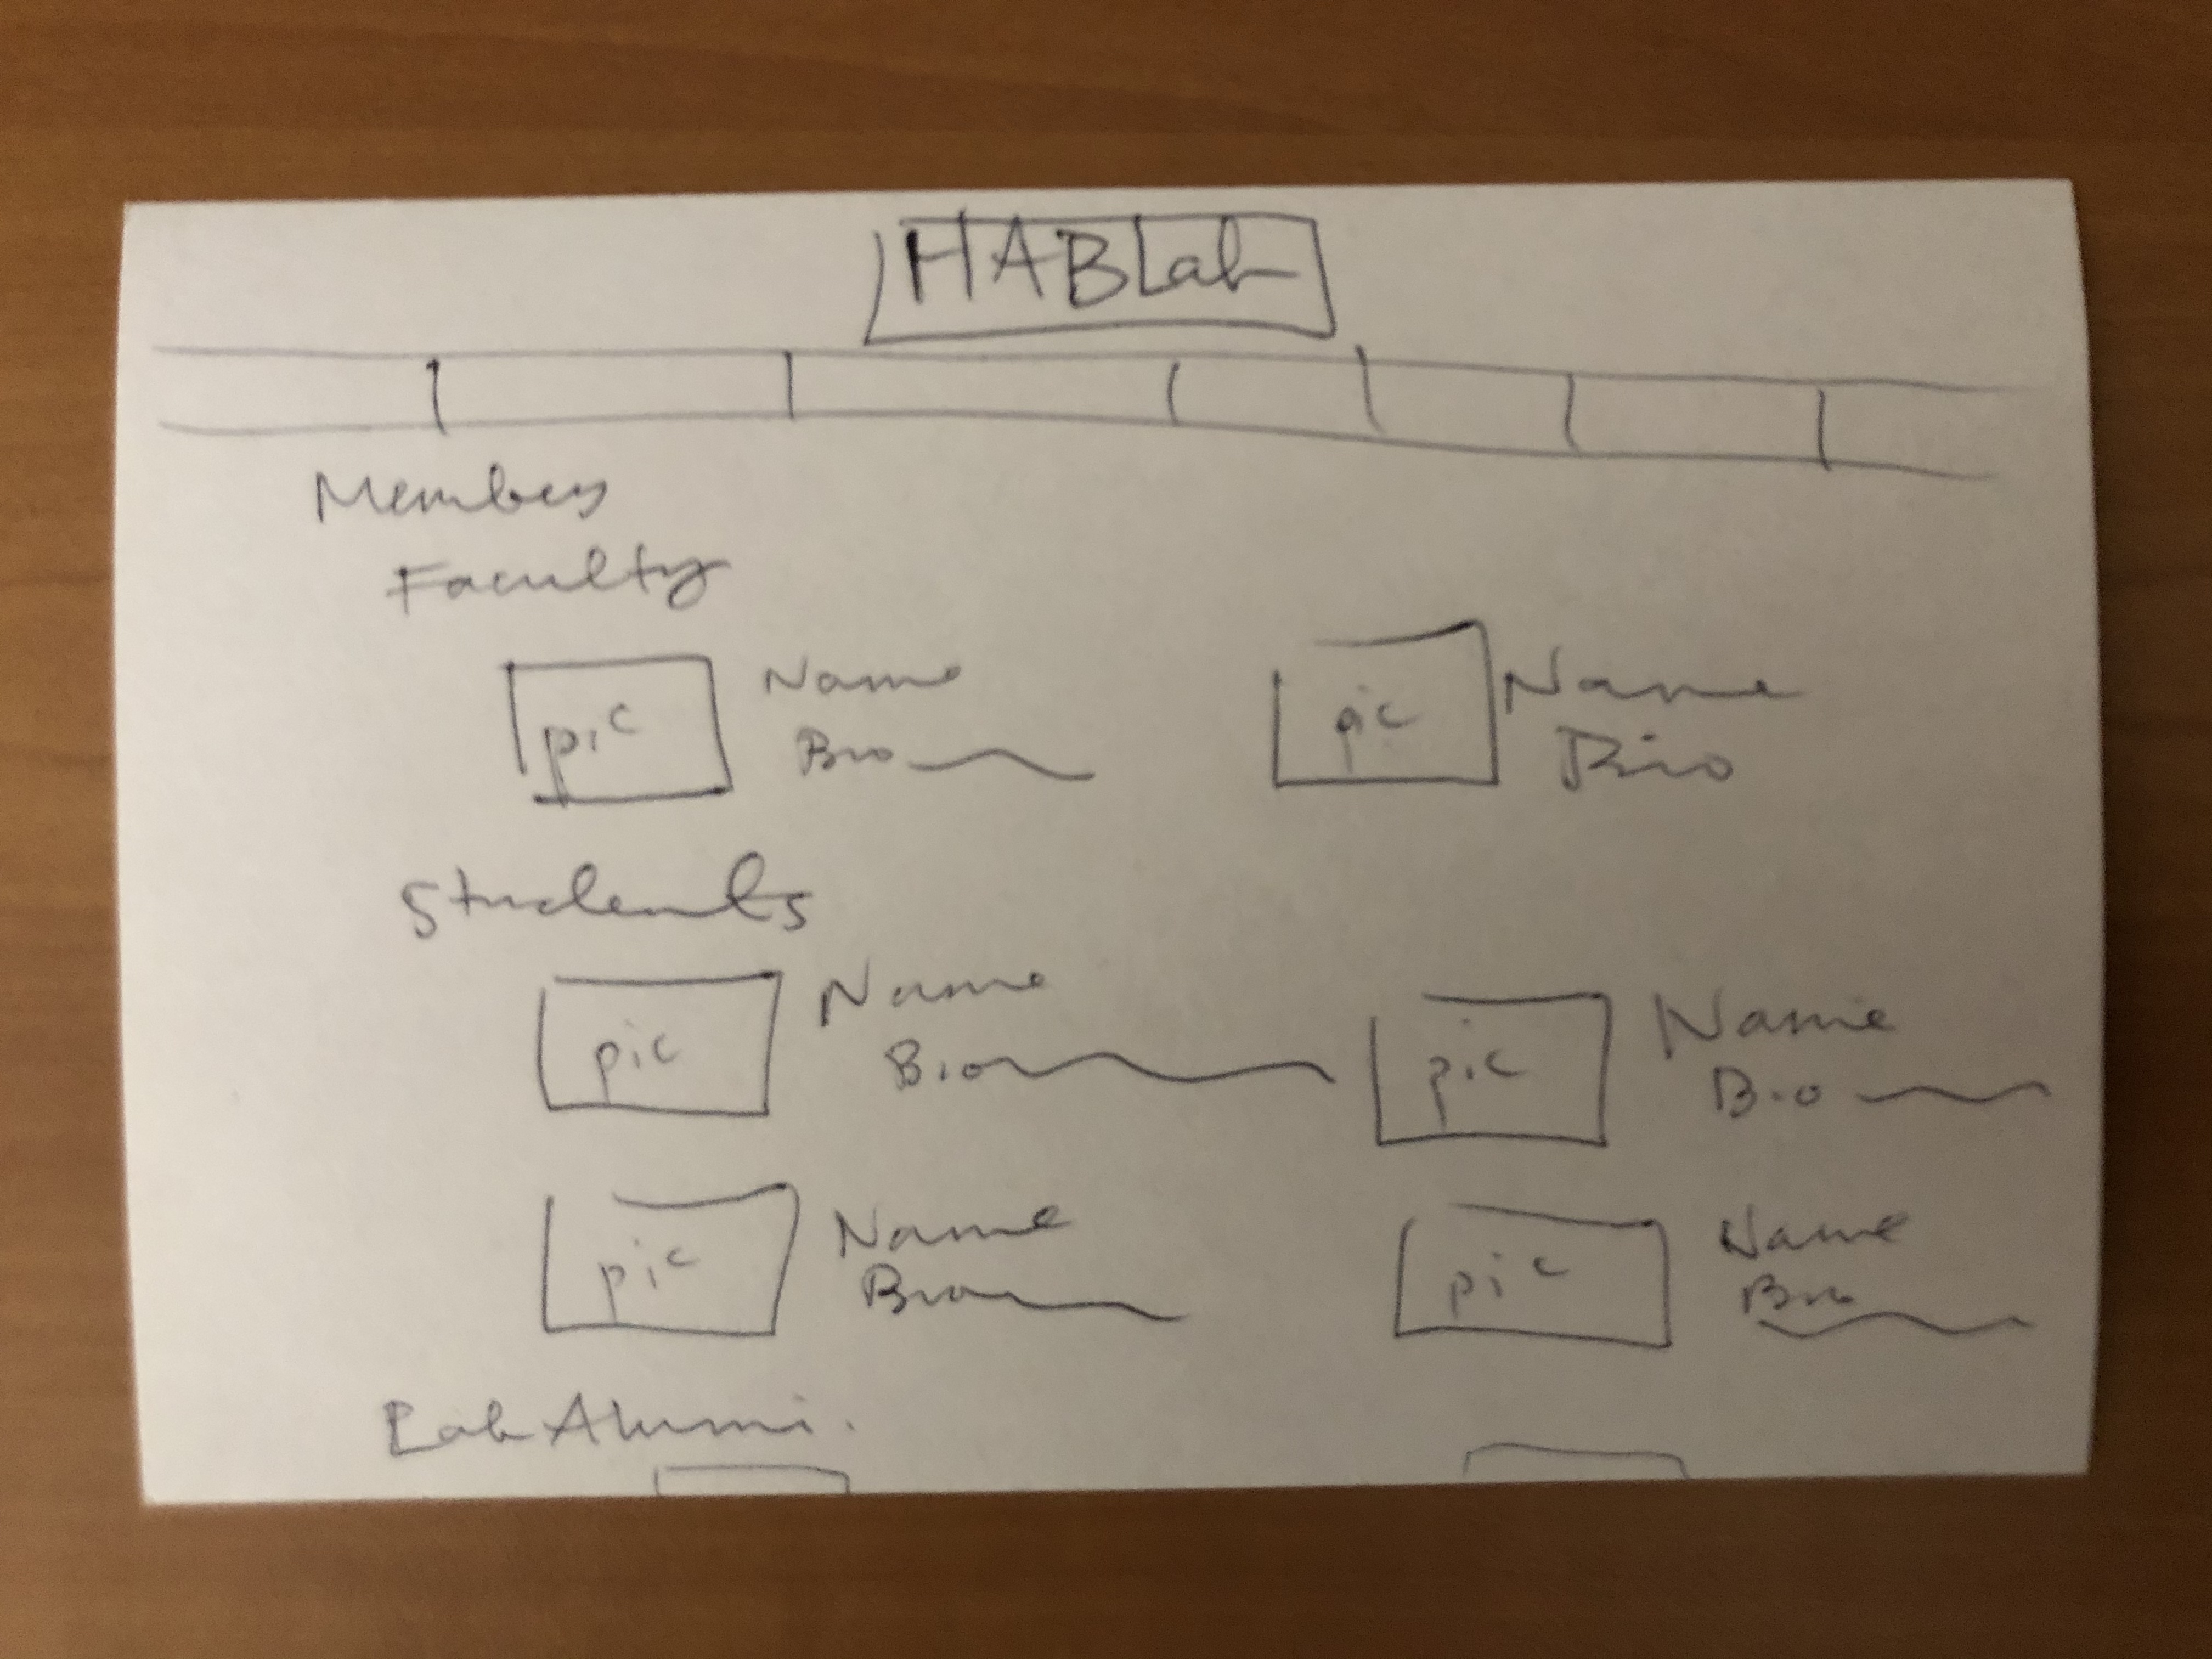 HABLab
Members
Faculty
pic Name pic Name
Bio Bio
Students
pic Name pic Name
Bio Bio
pic Name pic Name
Bio Bio
Lab Alumni.